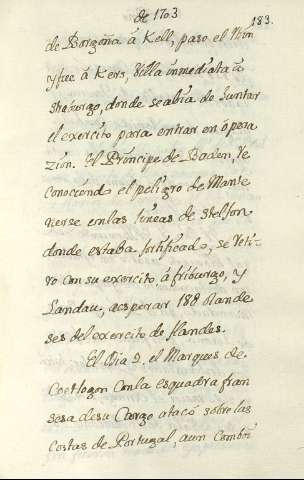 de 1703
183.
de Borgoña â Kell, paso el Rin
y fue â Kers, Villa inmediata â
Straburgo, donde seabia de Juntar
el exercito para entrar en opera
zion. El Principe de Baden, re
conociendo el peligro de Mante
nerse enlas lineas de Stelfon
donde estaba fortificado, se reti
ro con su exercito, â friburgo, y
Landau, aesperar 188 olande
ses del exercito de flandes.
El Dia 2. el Marques de
Coetlogon conla esquadra fran
sesa desu Cargo atacó sobre las
costas de Portugal, aun Combói